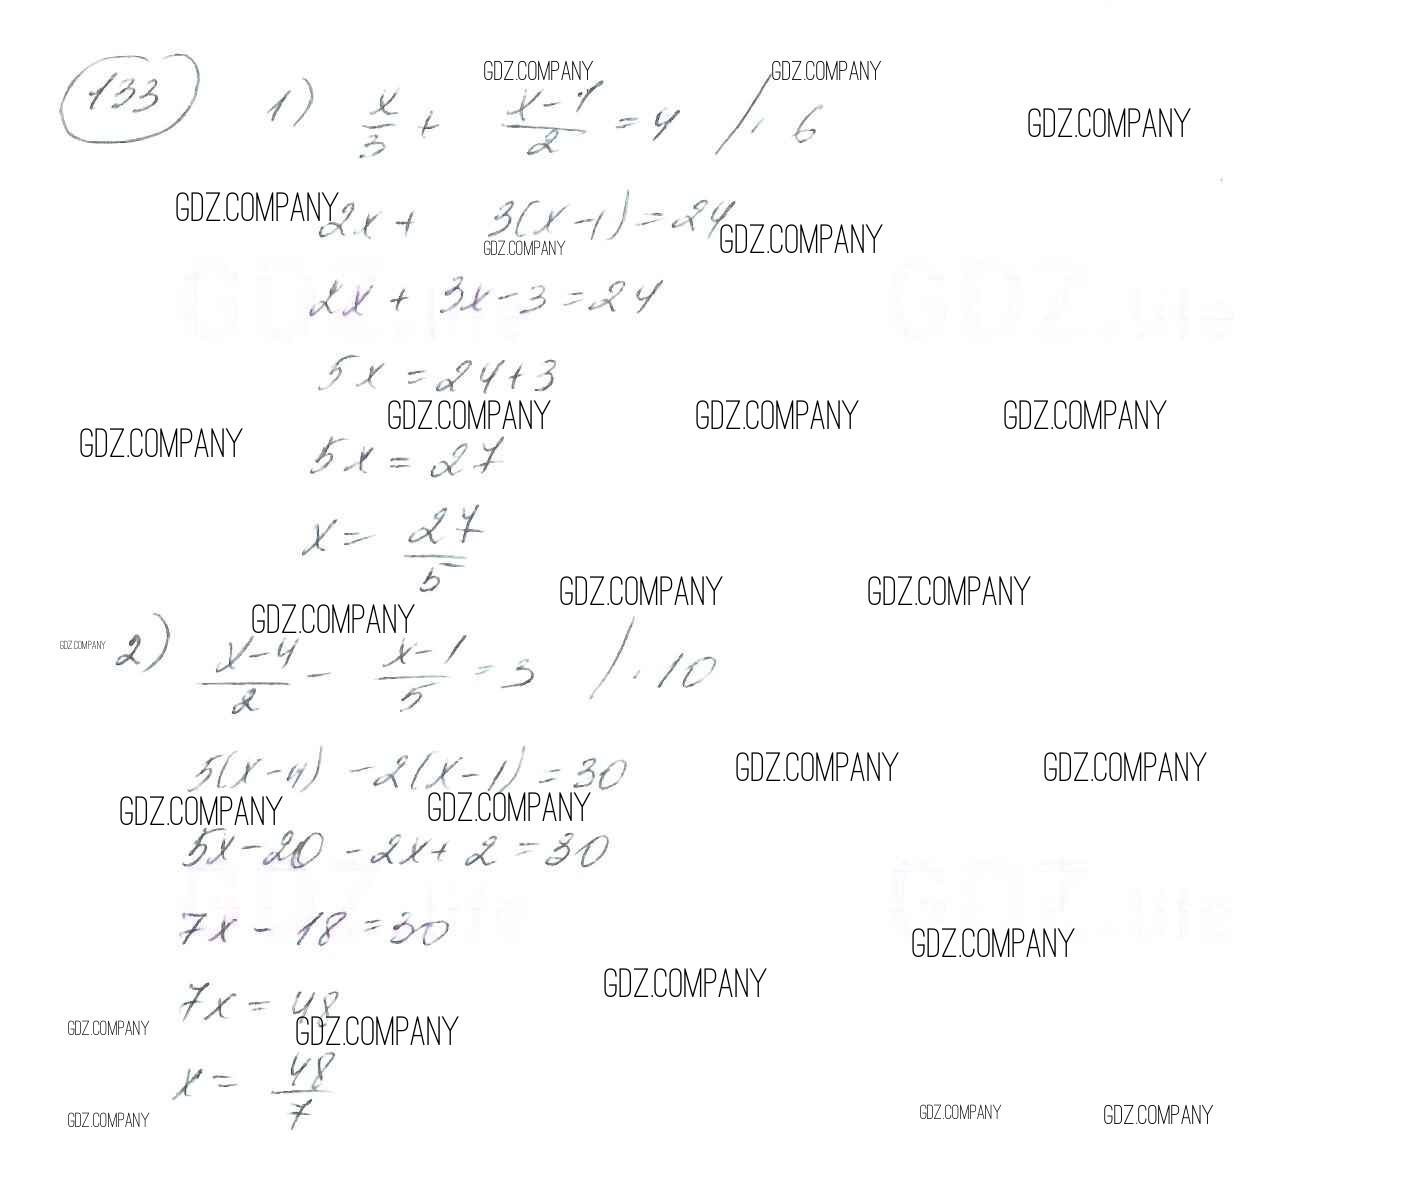 GDZ.COMPANY GDZ.COMPANY
133 1) x/3 + x-1/2 = 4 /· 6 GDZ.COMPANY
GDZ.COMPANY 2x + 3(x-1) = 24 GDZ.COMPANY
GDZ.COMPANY
2x + 3x - 3 = 24
GDZ.life GDZ.life
5x = 24+3
GDZ.COMPANY GDZ.COMPANY GDZ.COMPANY GDZ.COMPANY
5x = 27
x = 27/5
GDZ.COMPANY GDZ.COMPANY GDZ.COMPANY
GDZ.COMPANY 2) x-4/2 - x-1/5 = 3 /· 10
5(x-4) - 2(x-1) = 30 GDZ.COMPANY GDZ.COMPANY
GDZ.COMPANY GDZ.COMPANY
5x - 20 - 2x + 2 = 30
GDZ.life GDZ.life
7x - 18 = 30 GDZ.COMPANY
GDZ.COMPANY
7x = 48
GDZ.COMPANY GDZ.COMPANY
x = 48/7
GDZ.COMPANY GDZ.COMPANY GDZ.COMPANY